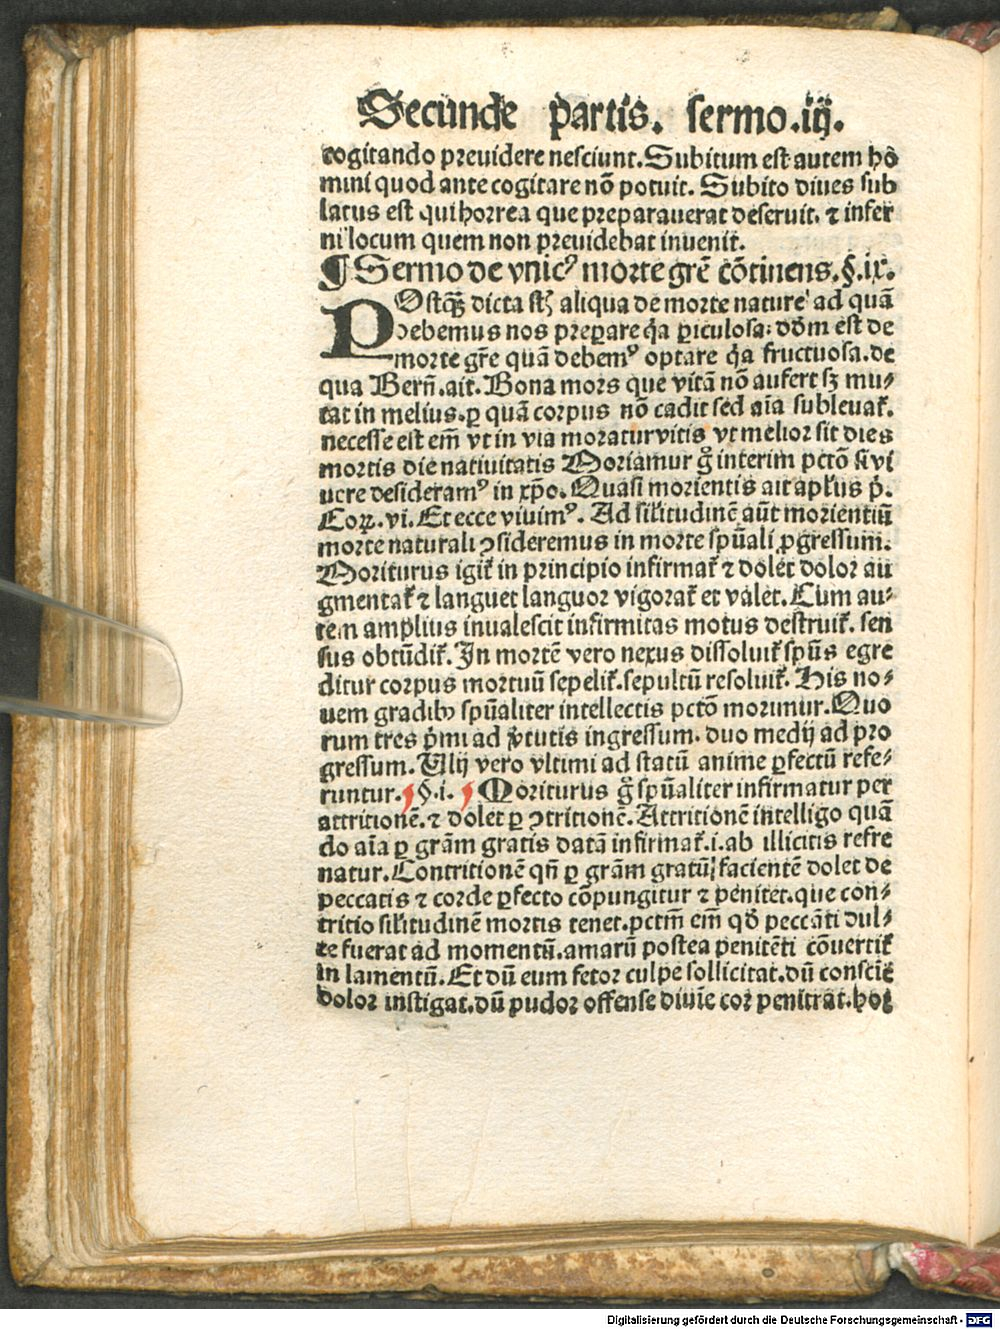 Secunde partis. sermo.iij.
cogitando preuidere nesciunt. Subitum est autem hō
mini quod ante cogitare nō potuit. Subito diues sub
latus est qui horrea que preparauerat deseruit. ⁊ infer
ni locum quem non preuidebat inuenit.
¶ Sermo de vnicꝰ morte gr̄e cōtinens.§.ix.
POstqꝫ dicta st̄ aliqua de morte nature ad quā
debemus nos preꝑare q̇a ꝑiculosa: dōm est de
morte gr̄e quā debemꝰ optare q̇a fructuosa. de
qua Bern̄.ait. Bona mors que vitā nō aufert sꝫ mu⸗
tat in melius. ꝑ quā corpus nō cadit sed aīa subleuat̄.
necesse est em̄ vt in via moratur vitis vt melior sit dies
mortis die natiuitatis Moriamur g̊ interim pctō si vi
uere desideramꝰ in xp̄o. Quasi morientis ait apl̄us .ij.
Coꝝ. vi. Et ecce viuimꝰ. Ad sil̄itudinē aūt morientiū
morte naturali ꝯsideremus in morte spūali ꝓgressum.
Moriturus igit̄ in principio infirmat̄ ⁊ dolet dolor au
gmentat̄ ⁊ languet languor vigorat̄ et valet. Cum au⸗
tem amplius inualescit infirmitas motus destruit̄. sen
sus obtūdit̄. In mortē vero nexus dissoluit̄ spūs egre
ditur corpus mortuū sepelit̄. sepultū resoluit̄. His no⸗
uem gradibꝰ spūaliter intellectis pctō morimur. Quo
rum tres p̄mi ad v̓tutis ingressum. duo medij ad pro
gressum. Alij vero vltimi ad statū anime ꝑfectū refe⸗
runtur. §.i. Moriturus g̊ spūaliter infirmatur per
attritionē. ⁊ dolet ꝑ ꝯtritionē. Attritionē intelligo quā
do aīa ꝑ grām gratis datā infirmat̄.i.ab illicitis refre
natur. Contritionē qn̄ ꝑ grām gratū facientē dolet de
peccatis ⁊ corde ꝑfecto cōpungitur ⁊ penitet. que con⸗
tritio sil̄itudinē mortis tenet. pctm̄ em̄ qd̄ peccāti dul⸗
te fuerat ad momentū. amarū postea penitēti cōuertit̄
in lamentū. Et dū eum fetor culpe sollicitat. dū consciē
dolor instigat. dū pudor offense diuīe cor penitrat. hoꝛ